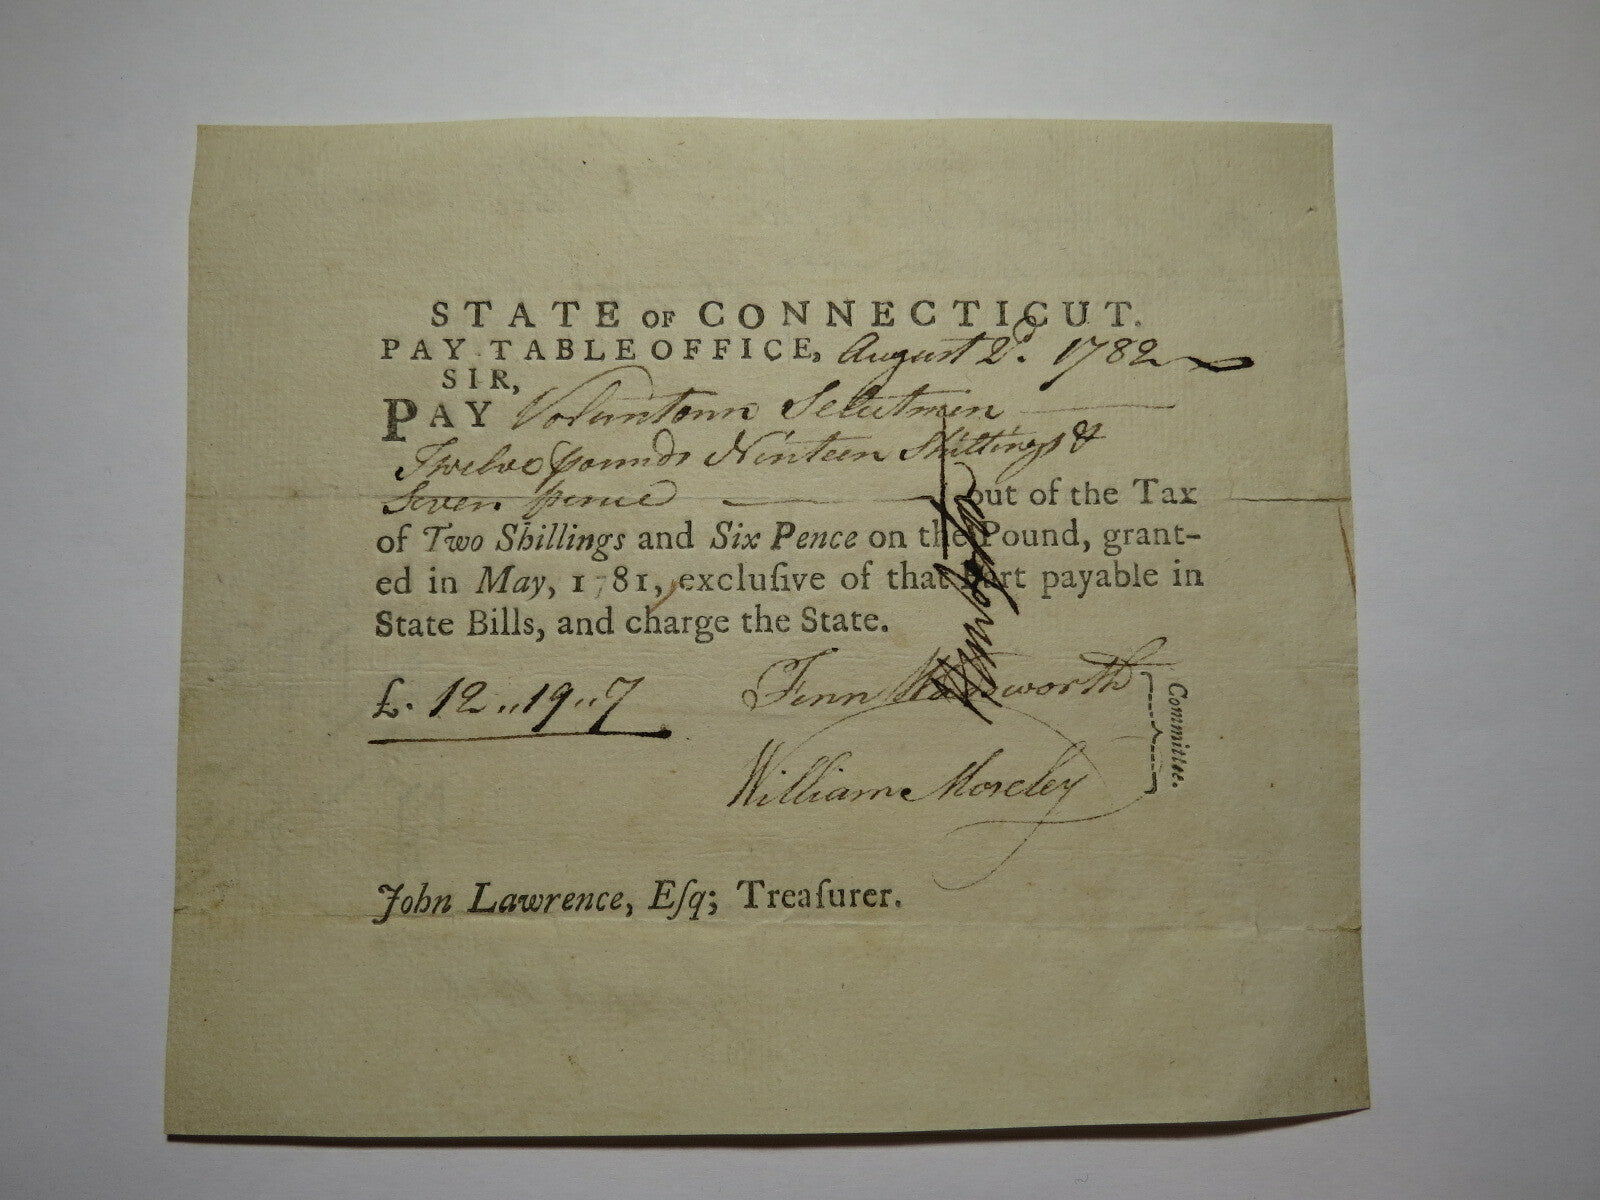 STATE OF CONNECTICUT.
PAY-TABLE OFFICE, August 2d. 1782
SIR,
PAY Voluntown Selectmen
Twelve pounds Ninteen Shillings &
Seven pence out of the Tax
of Two Shillings and Six Pence on the Pound, grant-
ed in May, 1781, excluſive of that Part payable in
State Bills, and charge the State.
£. 12..19..7
Fenn Wadsworth
William Moseley
Committee.
John Lawrence, Eſq; Treaſurer.